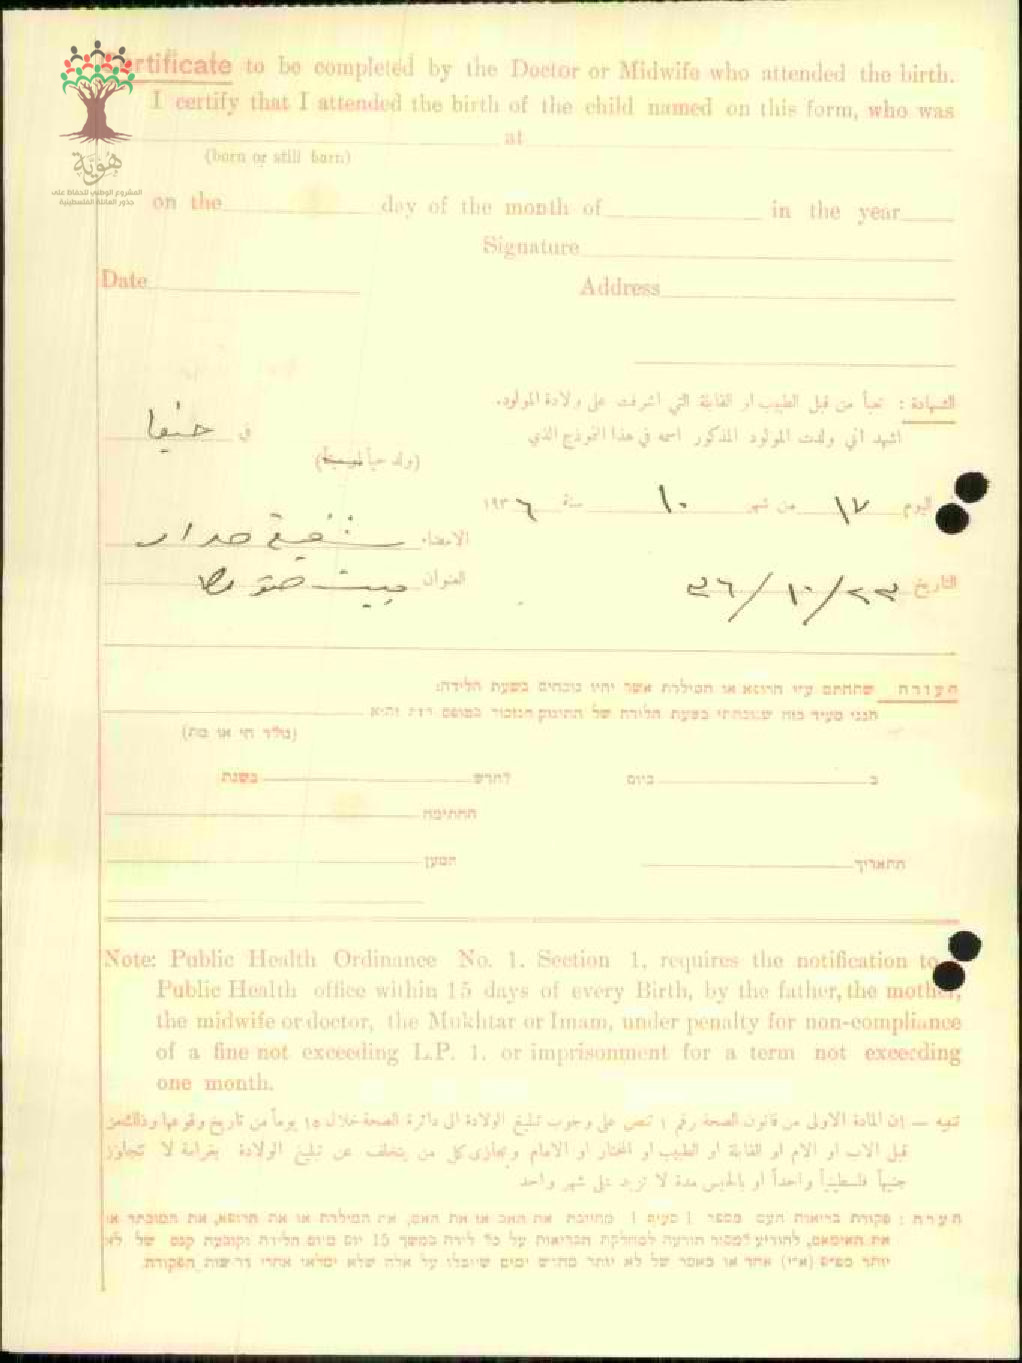 هُوِيَّة
المشروع الوطني للحفاظ على
جذور العائلة الفلسطينية
Certificate to be completed by the Doctor or Midwife who attended the birth.
I certify that I attended the birth of the child named on this form, who was
at
(born or still born)
on the day of the month of in the year
Signature
Date Address
الشهادة : تعبأ من قبل الطبيب او القابلة التي اشرفت على ولادة المولود.
اشهد اني ولدت المولود المذكور اسمه في هذا النموذج الذي في حيفا
(ولد حياً
اليوم ١٧ من شهر ١٠ سنة ١٩٣٦
الامضاء شفيع حداد
التاريخ ٢٣/١٠/٣٦ العنوان بيت
תעודה שתחתם ע״י הרופא או המילדת אשר יהיו נוכחים בשעת הלידה:
הנני מעיד בזה שנוכחתי בשעת הלידה של התינוק הנזכר בטופס הזה והוא
(נולד חי או מת)
ב ביום לחדש בשנת
החתימה
התאריך המען
Note: Public Health Ordinance No. 1. Section 1, requires the notification to
Public Health office within 15 days of every Birth, by the father, the mother,
the midwife or doctor, the Mukhtar or Imam, under penalty for non-compliance
of a fine not exceeding L.P. 1. or imprisonment for a term not exceeding
one month.
تنبيه — إن المادة الاولى من قانون الصحة رقم ١ تنص على وجوب تبليغ الولادة الى دائرة الصحة خلال ١٥ يوماً من تاريخ وقوعها وذلك من
قبل الاب او الام او القابلة او الطبيب او المختار او الامام ويجازى كل من يتخلف عن تبليغ الولادة بغرامة لا تتجاوز
جنيهاً فلسطينياً واحداً او بالحبس مدة لا تزيد على شهر واحد
הערה : פקודת בריאות העם מספר 1 סעיף 1 מחייבת את האב או את האם, את המילדת או את הרופא, את המוכתר או
את האימאם, למסור הודעה למחלקת הבריאות על כל לידה במשך 15 יום מיום הלידה וקובעת קנס של לא
יותר מפ״פ (א״י) אחד או מאסר של לא יותר מחדש ימים שיוטלו על אלה שלא ימלאו אחרי דרישות הפקודה.